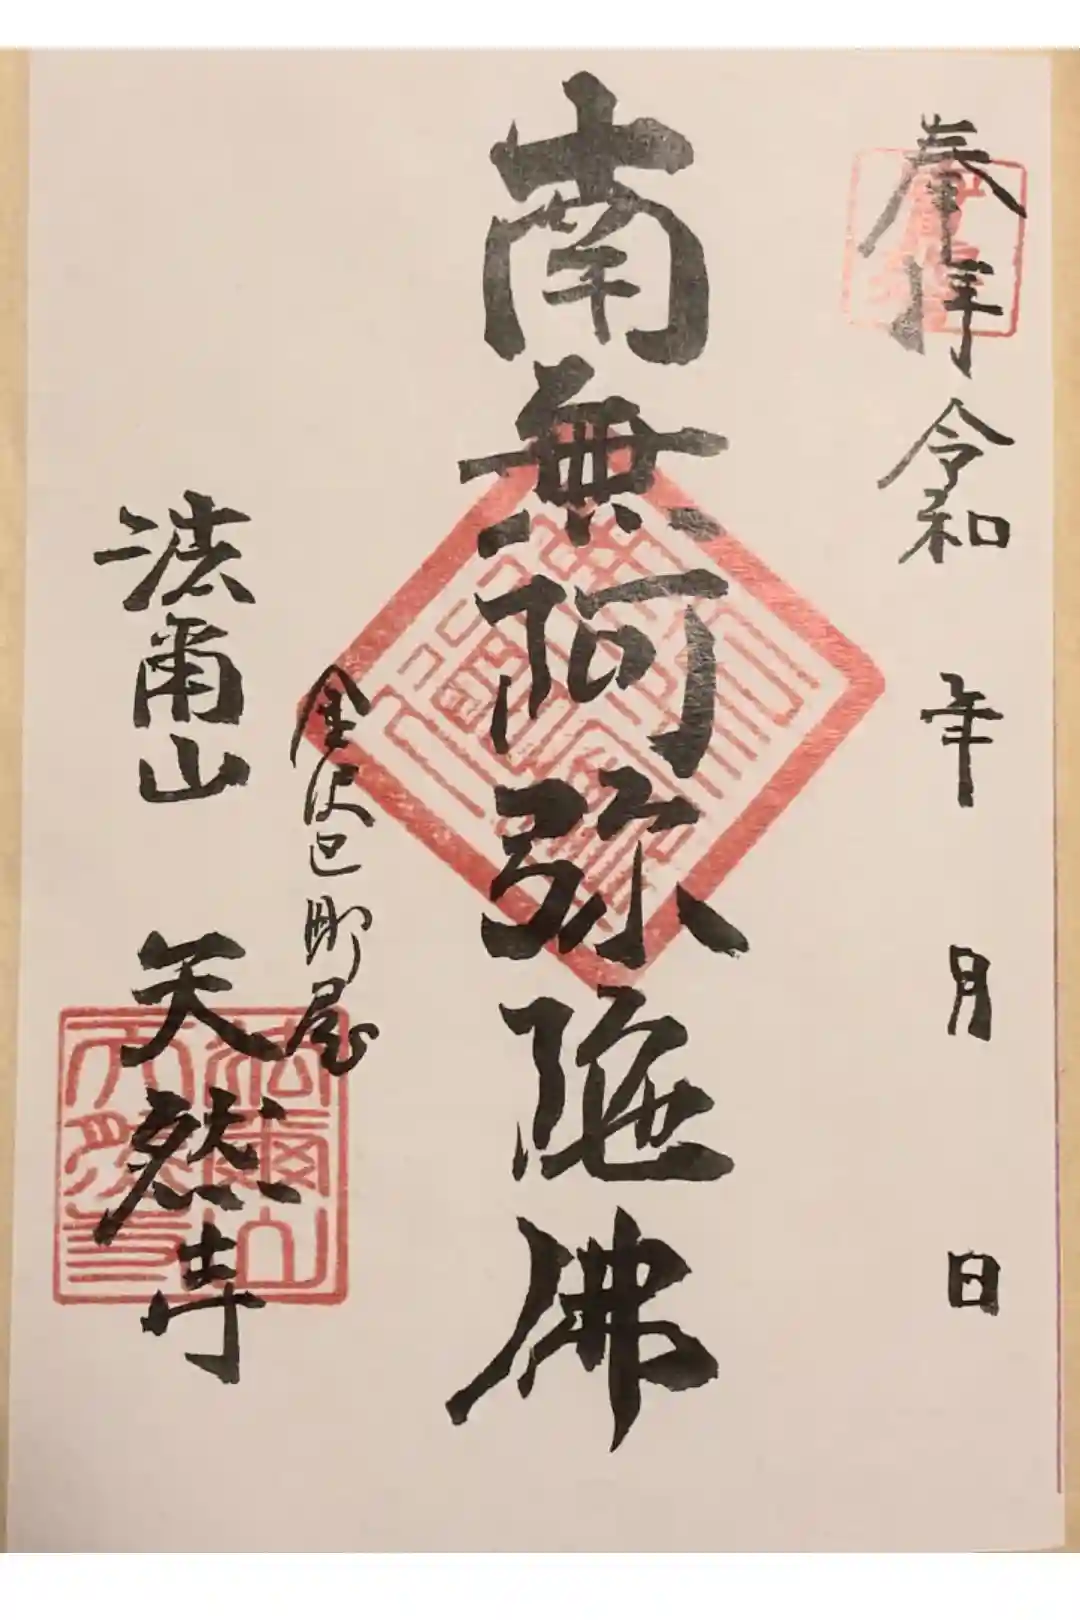 奉拝 令和 年 月 日
南無阿弥陀佛
金沢区町屋
法爾山 天然寺
法爾山天然寺